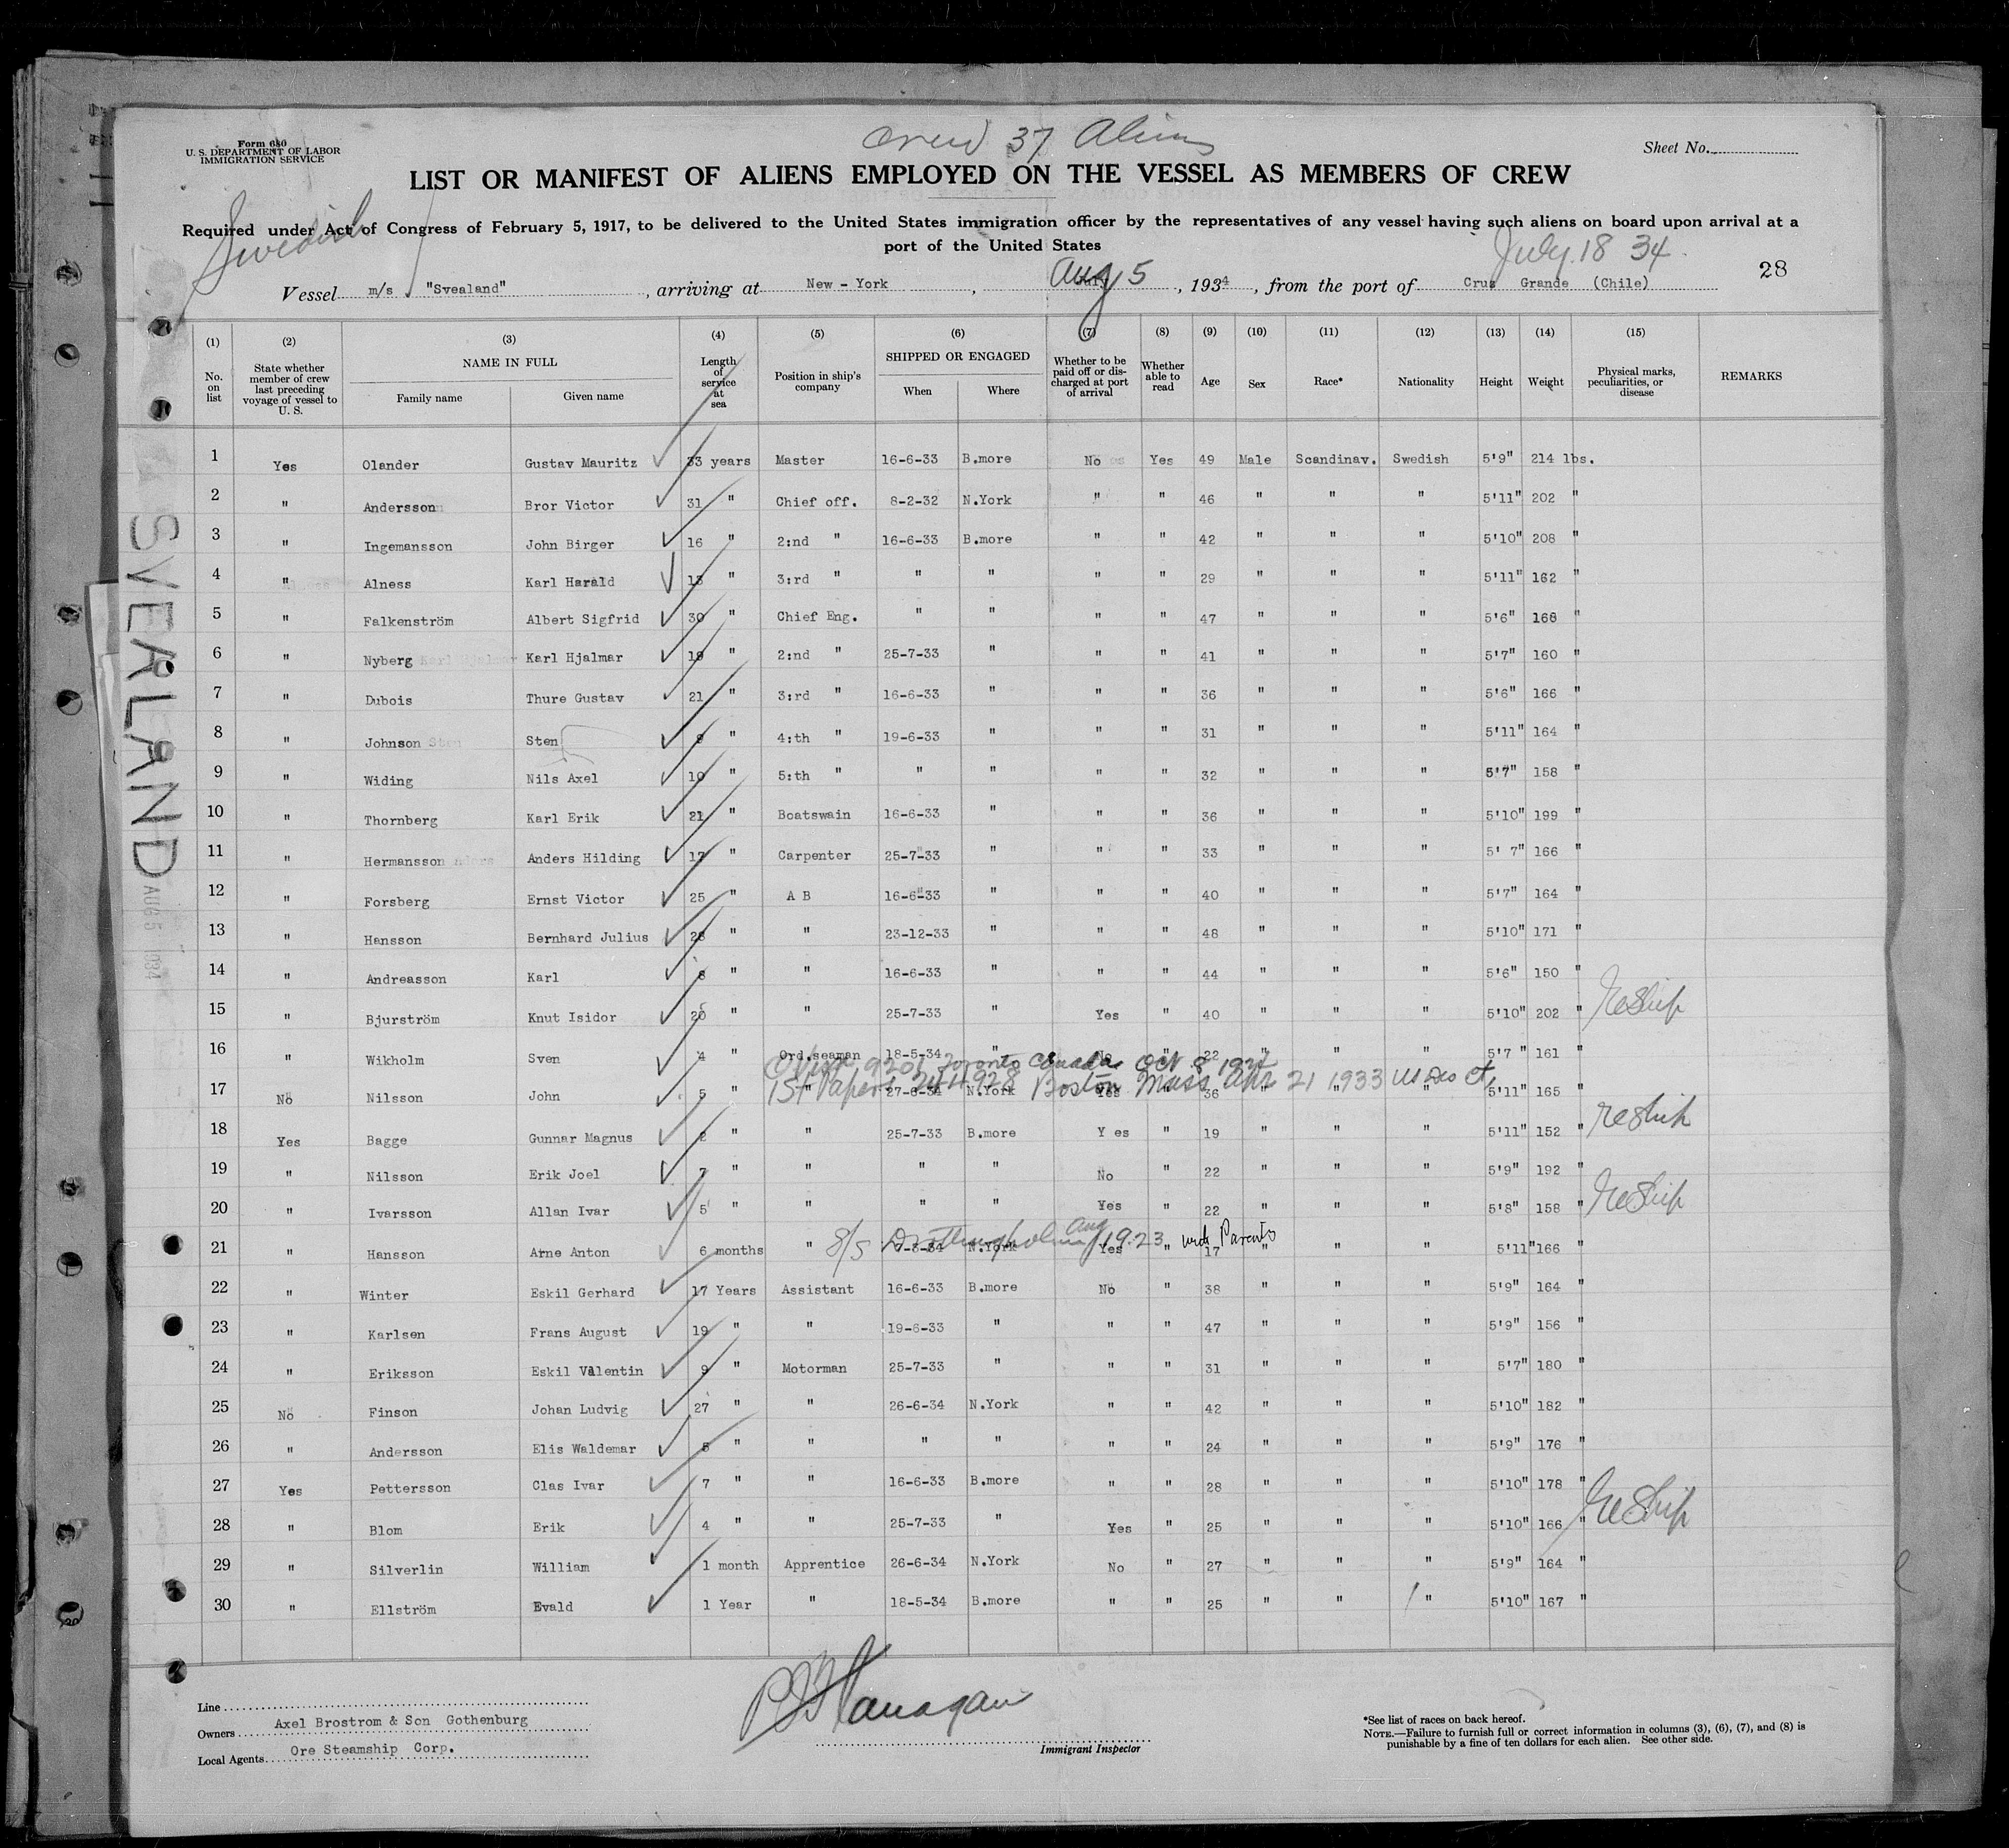 Crew 37 Aliens
Form 680
U. S. DEPARTMENT OF LABOR
IMMIGRATION SERVICE
Sheet No.
LIST OR MANIFEST OF ALIENS EMPLOYED ON THE VESSEL AS MEMBERS OF CREW
Swedish
Required under Act of Congress of February 5, 1917, to be delivered to the United States immigration officer by the representatives of any vessel having such aliens on board upon arrival at a
port of the United States
July 18 34
28
Vessel m/s "Svealand", arriving at New-York, Aug 5, 1934, from the port of Cruz Grande (Chile)
(1) (2) (3) (4) (5) (6) (7) (8) (9) (10) (11) (12) (13) (14) (15)
No. on list State whether member of crew last preceding voyage of vessel to U. S. NAME IN FULL Family name Given name Length of service at sea Position in ship's company SHIPPED OR ENGAGED When Where Whether to be paid off or discharged at port of arrival Whether able to read Age Sex Race* Nationality Height Weight Physical marks, peculiarities, or disease REMARKS
1 Yes Olander Gustav Mauritz 33 years Master 16-6-33 B.more No Yes 49 Male Scandinav. Swedish 5'9" 214 lbs.
2 " Andersson Bror Victor 31 " Chief off. 8-2-32 N.York " " 46 " " " 5'11" 202 "
3 " Ingemansson John Birger 16 " 2:nd " 16-6-33 B.more " " 42 " " " 5'10" 208 "
4 " Alness Karl Harald 13 " 3:rd " " " " " 29 " " " 5'11" 162 "
5 " Falkenström Albert Sigfrid 30 " Chief Eng. " " " " 47 " " " 5'6" 168 "
6 " Nyberg Karl Hjalmar 19 " 2:nd " 25-7-33 " " " 41 " " " 5'7" 160 "
7 " Dubois Thure Gustav 21 " 3:rd " 16-6-33 " " " 36 " " " 5'6" 166 "
8 " Johnson Sten 9 " 4:th " 19-6-33 " " " 31 " " " 5'11" 164 "
9 " Widing Nils Axel 10 " 5:th " " " " " 32 " " " 5'7" 158 "
10 " Thornberg Karl Erik 21 " Boatswain 16-6-33 " " " 36 " " " 5'10" 199 "
11 " Hermansson Anders Hilding 17 " Carpenter 25-7-33 " " " 33 " " " 5' 7" 166 "
12 " Forsberg Ernst Victor 25 " A B 16-6-33 " " " 40 " " " 5'7" 164 "
13 " Hansson Bernhard Julius 28 " " 23-12-33 " " " 48 " " " 5'10" 171 "
14 " Andreasson Karl 8 " " 16-6-33 " " " 44 " " " 5'6" 150 "
15 " Bjurström Knut Isidor 20 " " 25-7-33 " Yes " 40 " " " 5'10" 202 " Reship
16 " Wikholm Sven 4 " Ord.seaman 18-5-34 " No " 22 " " " 5'7 " 161 "
9201 Toronto Canada Oct 8
1st Papers Boston Mass Apr 21 1933 US Dis Ct,
17 No Nilsson John 5 " " 27-6-34 N.York Yes " 36 " " " 5'11" 165 "
18 Yes Bagge Gunnar Magnus 2 " " 25-7-33 B.more Y es " 19 " " " 5'11" 152 " reship
19 " Nilsson Erik Joel 7 " " " " No " 22 " " " 5'9" 192 "
20 " Ivarsson Allan Ivar 5 " " " " Yes " 22 " " " 5'8" 158 " Reship
S/S Drottningholm Aug 1923 with Parents
21 " Hansson Arne Anton 6 months " N.York Yes " 17 " " " 5'11" 166 "
22 " Winter Eskil Gerhard 17 Years Assistant 16-6-33 B.more No " 38 " " " 5'9" 164 "
23 " Karlsen Frans August 19 " " 19-6-33 " " " 47 " " " 5'9" 156 "
24 " Eriksson Eskil Valentin 9 " Motorman 25-7-33 " " " 31 " " " 5'7" 180 "
25 No Finson Johan Ludvig 27 " " 26-6-34 N.York " " 42 " " " 5'10" 182 "
26 " Andersson Elis Waldemar 5 " " " " " " 24 " " " 5'9" 176 "
27 Yes Pettersson Clas Ivar 7 " " 16-6-33 B.more " " 28 " " " 5'10" 178 "
28 " Blom Erik 4 " " 25-7-33 " Yes " 25 " " " 5'10" 166 " Reship
29 " Silverlin William 1 month Apprentice 26-6-34 N.York No " 27 " " " 5'9" 164 "
30 " Ellström Evald 1 Year " 18-5-34 B.more " " 25 " " " 5'10" 167 "
SVERLAND
AUG 5 1934
P J Flanagan
Immigrant Inspector
Line
Owners Axel Brostrom & Son Gothenburg
Local Agents Ore Steamship Corp.
*See list of races on back hereof.
NOTE.—Failure to furnish full or correct information in columns (3), (6), (7), and (8) is
punishable by a fine of ten dollars for each alien. See other side.